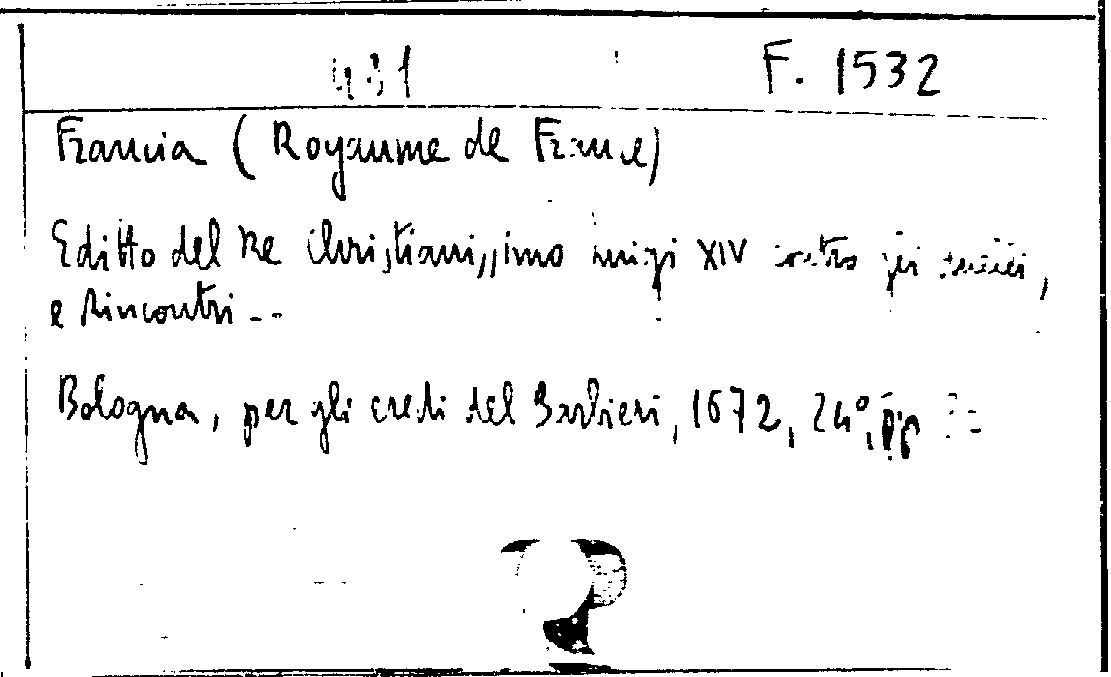 431 F. 1532
Francia (Royaume de France)
Editto del Re Christianissimo Luigi XIV contro gli
e Rincontri --
Bologna, per gli eredi del Barbieri, 1672, 24°, pp